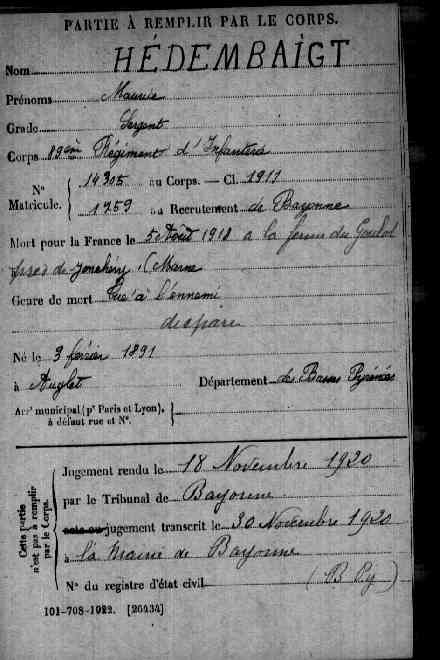 PARTIE À REMPLIR PAR LE CORPS.
Nom HÉDEMBAIGT
Prénoms Maurice
Grade Sergent
Corps 89em Régiment d'Infanterie
N° Matricule. 14305 au Corps. — Cl. 1911
1759 au Recrutement de Bayonne
Mort pour la France le 5 Août 1918 a la ferme du Goulot
près de Jonchery (Marne
Genre de mort Tué à l'ennemi
disparu
Né le 3 février 1891
à Anglet Département des Basses Pyrénées
Arrt municipal (pr Paris et Lyon), à défaut rue et N°.
Cette partie n'est pas à remplir par le Corps.
Jugement rendu le 18 Novembre 1920
par le Tribunal de Bayonne
acte ou jugement transcrit le 30 Novembre 1920
à la Mairie de Bayonne
N° du registre d'état civil (B Py)
101-708-1922. [26434]